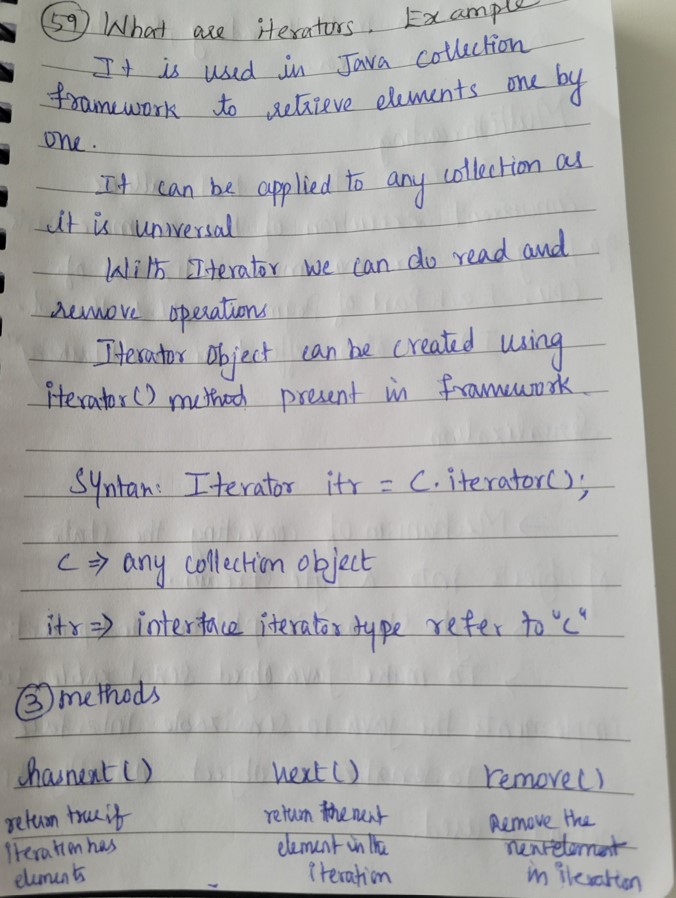 59 What are iterators. Example
It is used in Java collection
framework to retrieve elements one by
one.
It can be applied to any collection as
it is universal
With Iterator we can do read and
remove operations
Iterator Object can be created using
iterator() method present in framework
Syntax: Iterator itr = C.iterator();
C ⇒ any collection object
itr ⇒ interface iterator type refer to "C"
3 methods
hasnext() next() remove()
return true if return the next Remove the
iteration has element in the next element
elements iteration in iteration